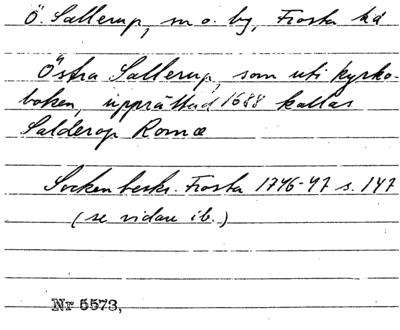 Ö. Sallerup, sn o. by, Frosta hd
Östra Sallerup, som uti kyrko-
boken, upprättad 1688 kallas
Salderop Romæ
Sockenbeskr. Frosta 1746-47 s. 147
(se vidare ib.)
Nr 5573,